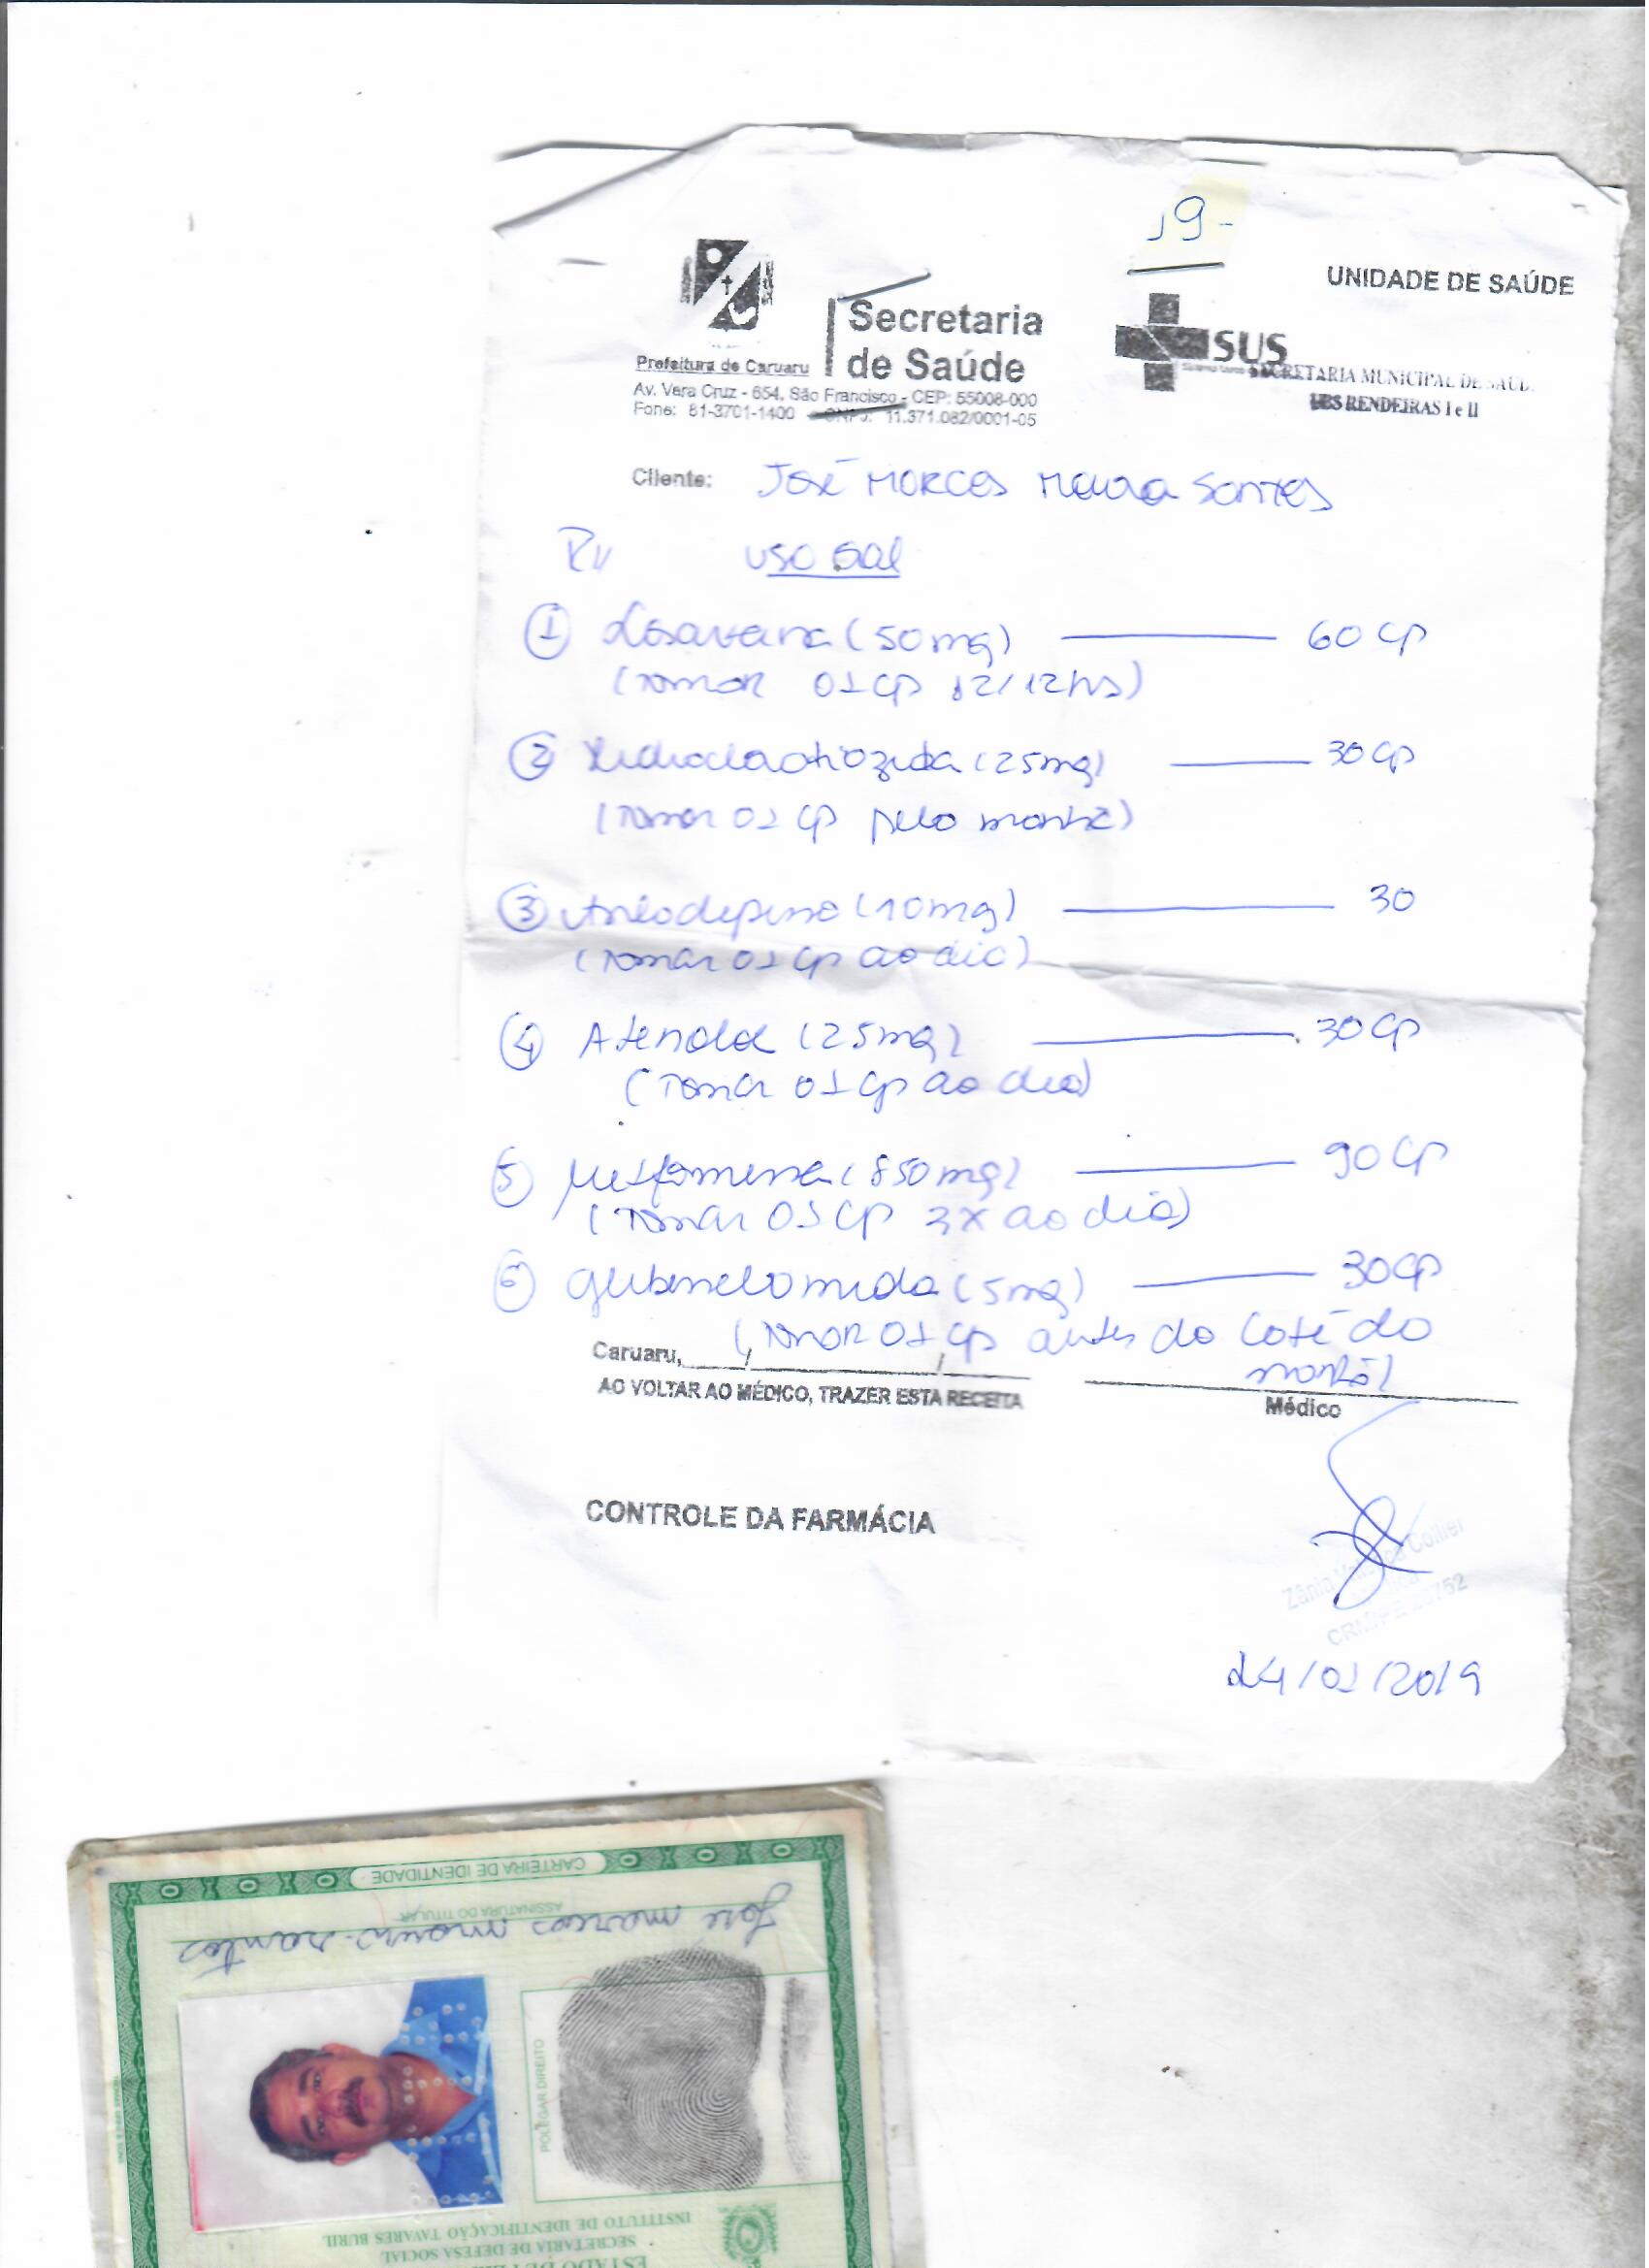 19-
UNIDADE DE SAÚDE
Secretaria
de Saúde
Prefeitura de Caruaru
Av. Vera Cruz - 654, São Francisco - CEP: 55008-000
Fone: 81-3701-1400 CNPJ: 11.371.082/0001-05
SUS
SECRETARIA MUNICIPAL DE SAÚD
UBS RENDEIRAS I e II
Cliente: José Marcos Moura Santos
uso oral
① Losartana (50mg) 60 cp
(Tomar 01 cp 12/12hs)
② Hidroclorotiazida (25mg) 30 cp
(Tomar 01 cp pela manhã)
③ Anlodipino (10mg) 30
(Tomar 01 cp ao dia)
④ Atenolol (25mg) 30 cp
(Tomar 01 cp ao dia)
⑤ Metformina (850mg) 90 cp
(Tomar 01 cp 3x ao dia)
⑥ Glibenclamida (5mg) 30 cp
(Tomar 01 cp antes do café da
manhã)
Caruaru, ____/____________/
AO VOLTAR AO MÉDICO, TRAZER ESTA RECEITA
Médico
CONTROLE DA FARMÁCIA
Collier
24/01/2019
CARTEIRA DE IDENTIDADE
ASSINATURA DO TITULAR
José marcos moura santos
POLEGAR DIREITO
INSTITUTO DE IDENTIFICAÇÃO TAVARES BURIL
SECRETARIA DE DEFESA SOCIAL